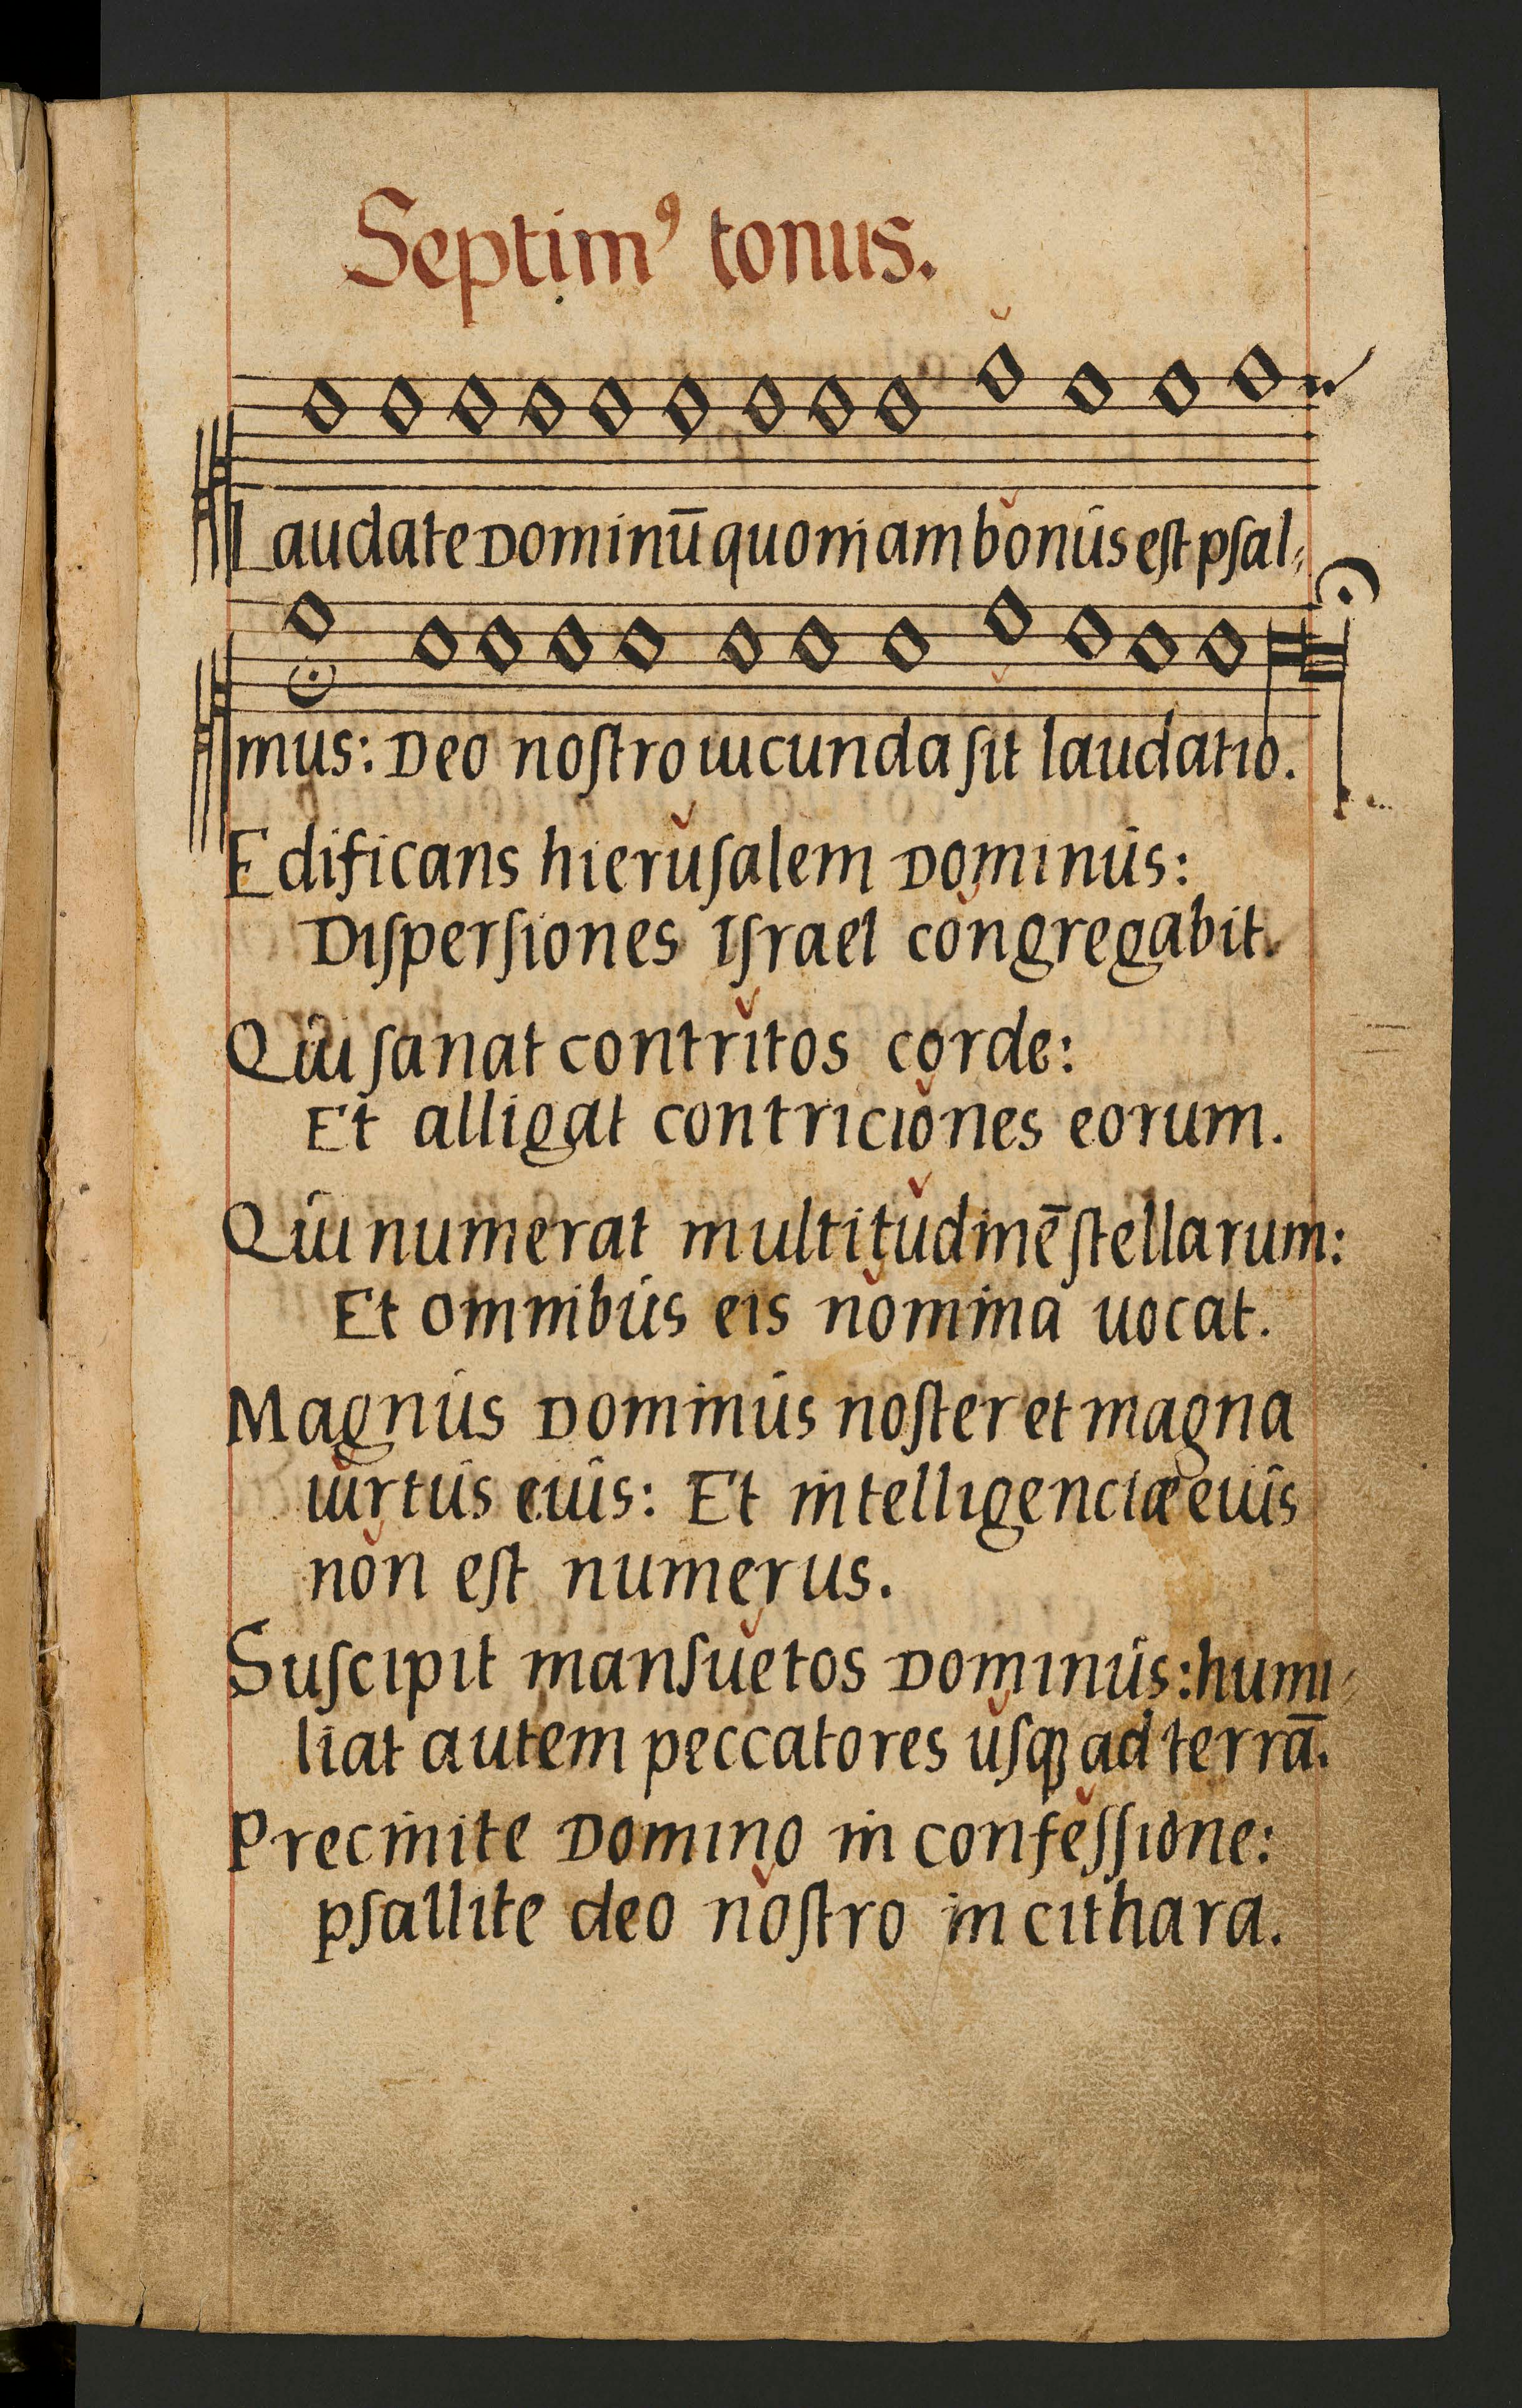 Septimꝰ tonus.
Laudate Dominū quoniam bonus eſt pſal⸗
mus: Deo noſtro iucunda ſit laudatio.
Edificans hieruſalem Dominus:
Diſperſiones Iſrael congregabit.
Qui ſanat contritos corde:
Et alligat contriciones eorum.
Qui numerat multitudinē ſtellarum:
Et omnibus eis nomina uocat.
Magnus Dominus noſter et magna
uirtus eius: Et intelligenciæ eius
non eſt numerus.
Suſcipit manſuetos Dominus: humi⸗
liat autem peccatores uſqꝫ ad terrā.
Precinite Domino in confeſſione:
pſallite deo noſtro in cithara.